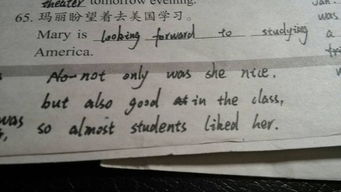 theater tomorrow evening.
65. 玛丽盼望着去美国学习。
Mary is looking forward to studying
America.
not only was she nice.
but also good in the class,
so almost students liked her.
was
a
was